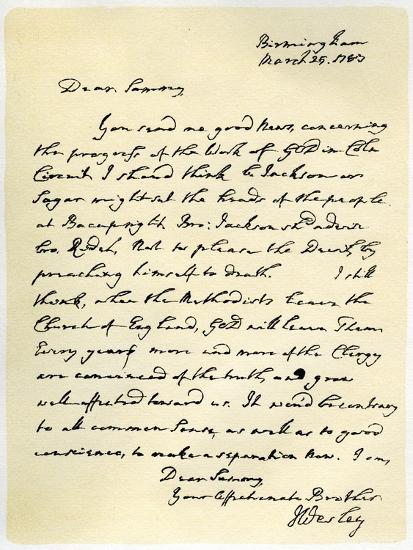 Birmingham
March 25. 1787
Dear Sammy
You send me good News, concerning
the progress of the Work of GOD in Coln
Circuit. I should think Br Jackson or
Sugar might set the heads of the people
at Bacup right. Bro: Jackson shd advise
bro. Ridel, Not to please the Devil, by
preaching himself to death. I still
think, when the Methodists leave the
Church of England, GOD will leave Them.
Every year more and more of the Clergy
are convinced of the truth, and grow
well-affected toward us. It woud be contrary
to all common Sense, as well as to good
conscience, to make a separation now. I am,
Dear Sammy,
Your Affectionate Brother
JWesley